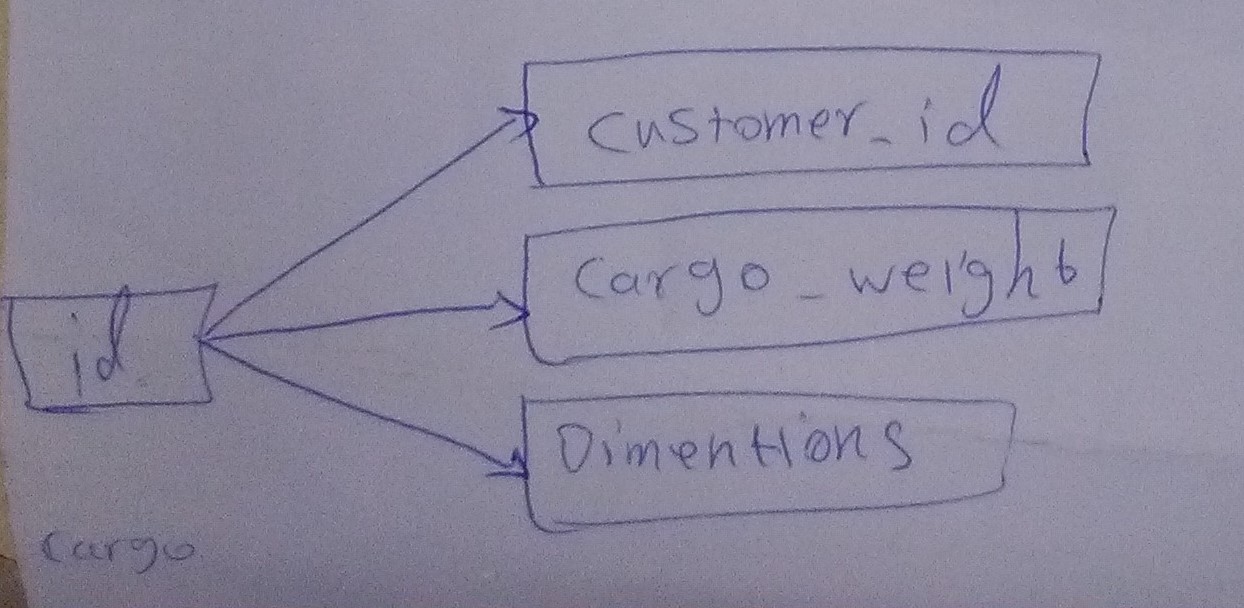 customer_id
id
cargo_weight
Dimentions
cargo